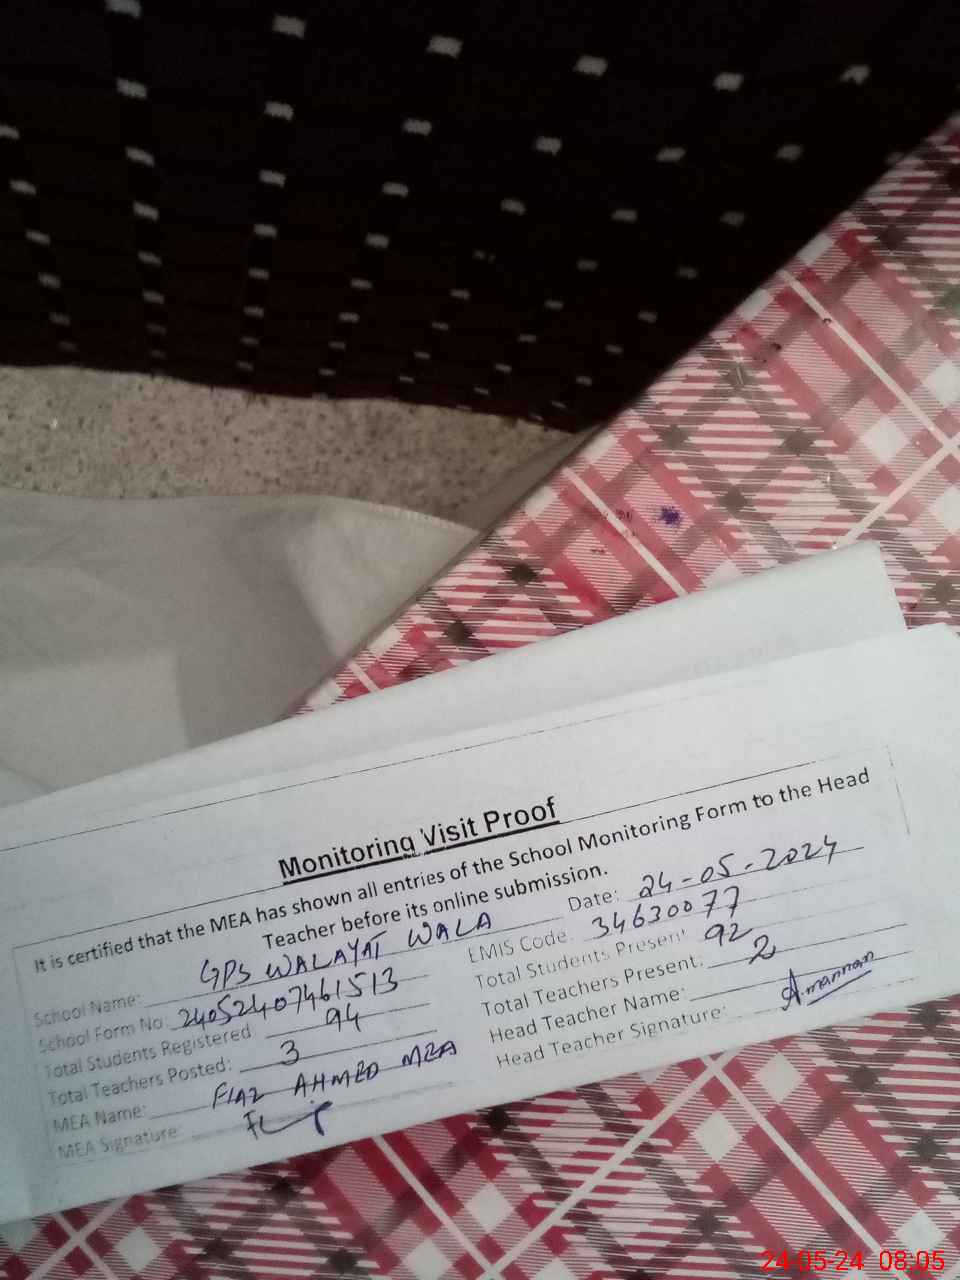 Monitoring Visit Proof
It is certified that the MEA has shown all entries of the School Monitoring Form to the Head
Teacher before its online submission.
School Name: GPS WALAYAT WALA Date: 24-05-2024
School Form No: 24052407461513 EMIS Code 34630077
Total Students Registered 94 Total Students Present 92
Total Teachers Posted: 3 Total Teachers Present: 2
MEA Name: FIAZ AHMED MEA Head Teacher Name:
MEA Signature: Head Teacher Signature: A.mannan
24-05-24 08:05